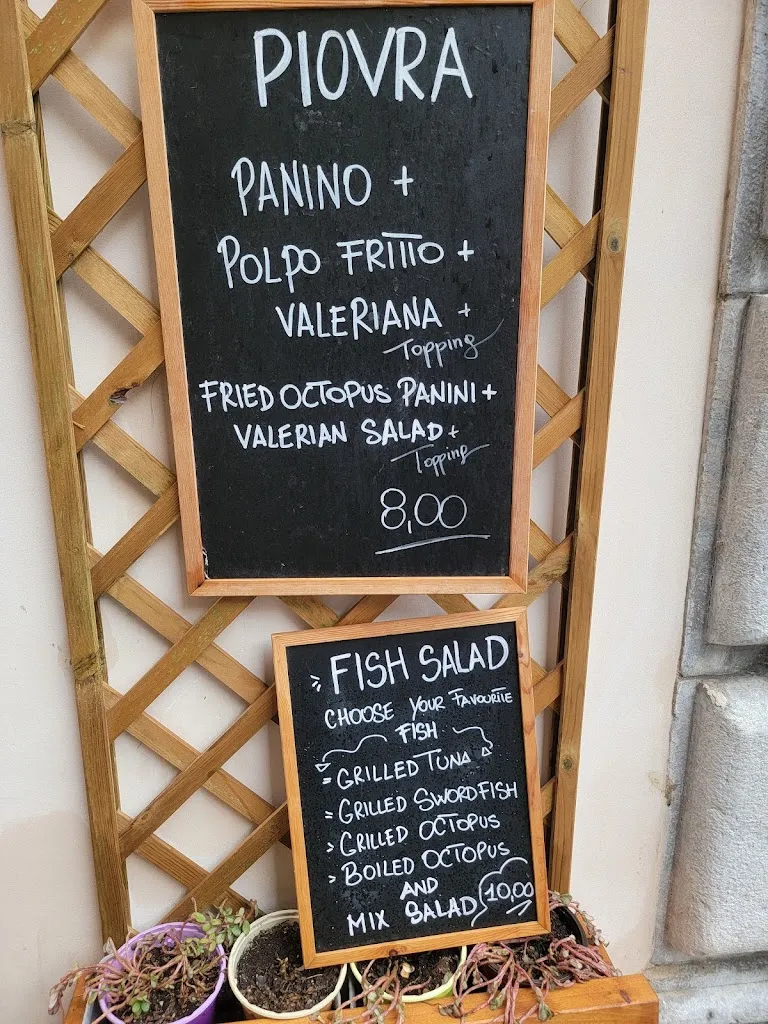 PIOVRA
PANINO +
POLPO FRITTO +
VALERIANA +
Topping
FRIED OCTOPUS PANINI +
VALERIAN SALAD +
Topping
8,00
FISH SALAD
CHOOSE YOUR FAVOURITE
FISH
GRILLED TUNA
GRILLED SWORDFISH
GRILLED OCTOPUS
BOILED OCTOPUS
AND
MIX SALAD 10,00